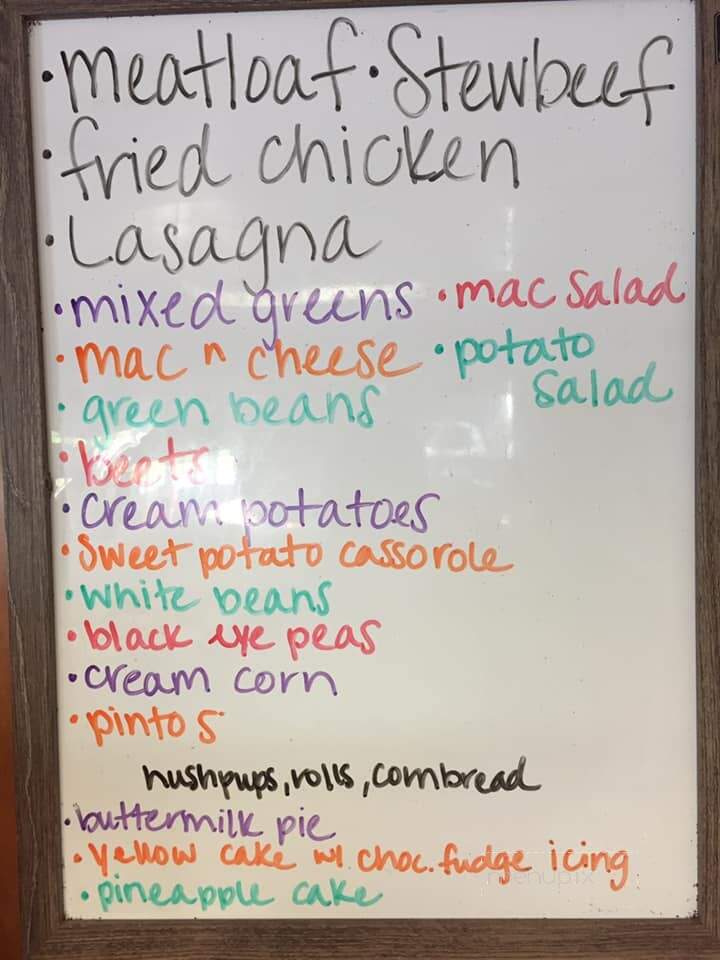 ·meatloaf ·Stewbeef
·fried chicken
·Lasagna
·mixed greens ·mac Salad
·mac n cheese ·potato
Salad
·green beans
·beets
·cream potatoes
·Sweet potato cassorole
·white beans
·black eye peas
·cream corn
·pintos
hushpups, rolls, cornbread
·buttermilk pie
·yellow cake w/ choc. fudge icing
menupix
·pineapple cake